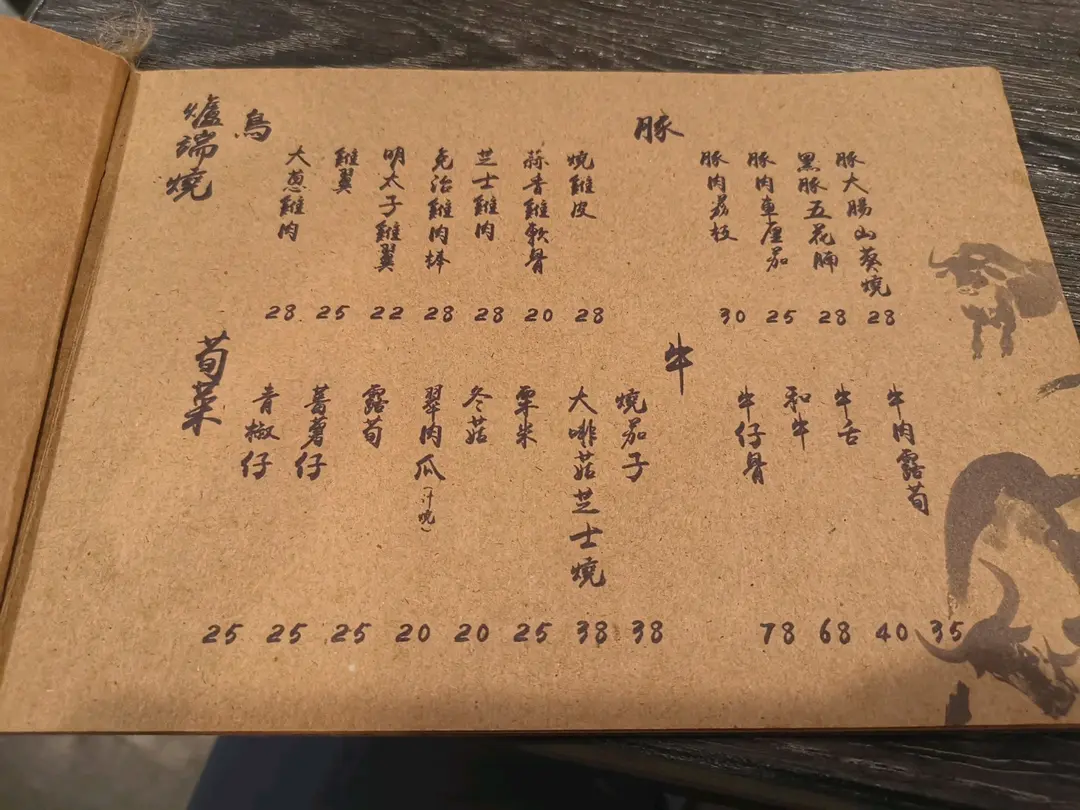 爐端燒
鳥
大蔥雞肉
雞翼
明太子雞翼
免治雞肉棒
芝士雞肉
蒜香雞軟骨
燒雞皮
28 25 22 28 28 20 28
豚
豚肉荔枝
豚肉車厘茄
黑豚五花腩
豚大腸山葵燒
30 25 28 28
荀菜
青椒仔
蕃薯仔
露荀
翠肉瓜(汁燒)
冬菇
粟米
大啡菇芝士燒
燒茄子
25 25 25 20 20 25 38 38
牛
牛仔骨
和牛
牛舌
牛肉露荀
78 68 40 35